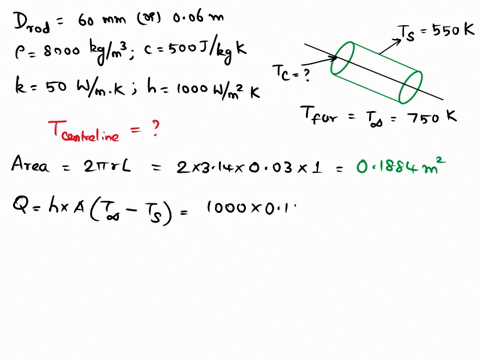 D_rod = 60 mm (or) 0.06 m
ρ = 8000 kg/m³ ; c = 500 J/kg K
k = 50 W/m.K ; h = 1000 W/m² K
T_S = 550 K
T_C = ?
T_fur = T_∞ = 750 K
T_centreline = ?
Area = 2πrL = 2×3.14×0.03×1 = 0.1884 m²
Q = h×A (T_∞ − T_S) = 1000×0.1